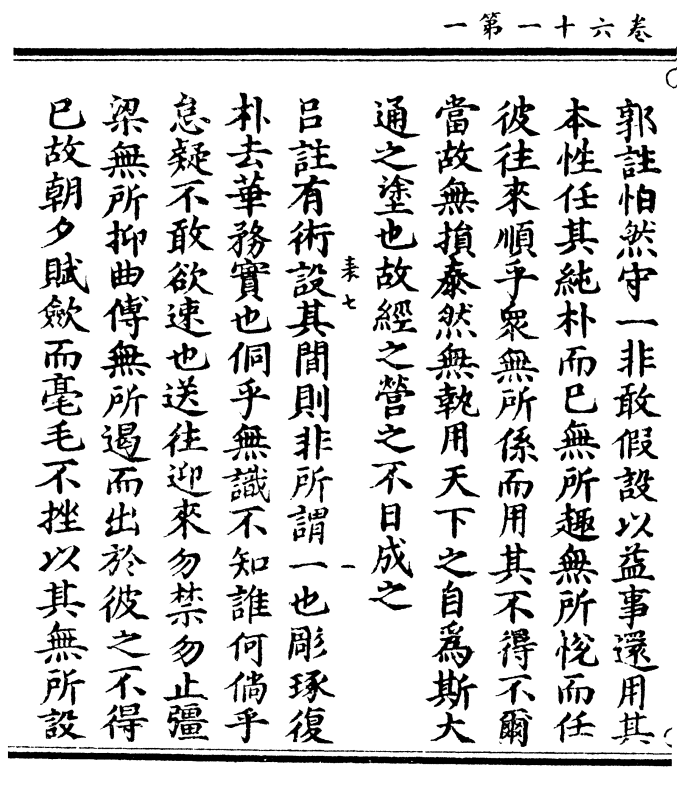 一第一十六卷
郭註怕然守一非敢假設以益事還用其
本性任其純朴而已無所趣無所悅而任
彼往來順乎衆無所係而用其不得不爾
當故無損泰然無執用天下之自爲斯大
通之塗也故經之營之不日成之
七
呂註有術設其間則非所謂一也彫琢復
朴去華務實也侗乎無識不知誰何倘乎
怠疑不敢欲速也送往迎來勿禁勿止彊
梁無所抑曲傅無所遏而出於彼之不得
已故朝夕賦斂而毫毛不挫以其無所設